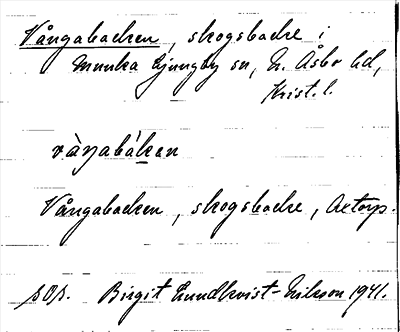 Vångabacken, skogsbacke i
Munka Ljungby sn, N. Åsbo hd,
Krist. l.
vàŋabáken
Vångabacken, skogsbacke, Axtorp.
sOp. Birgit Lundkvist-Nilsson 1941.